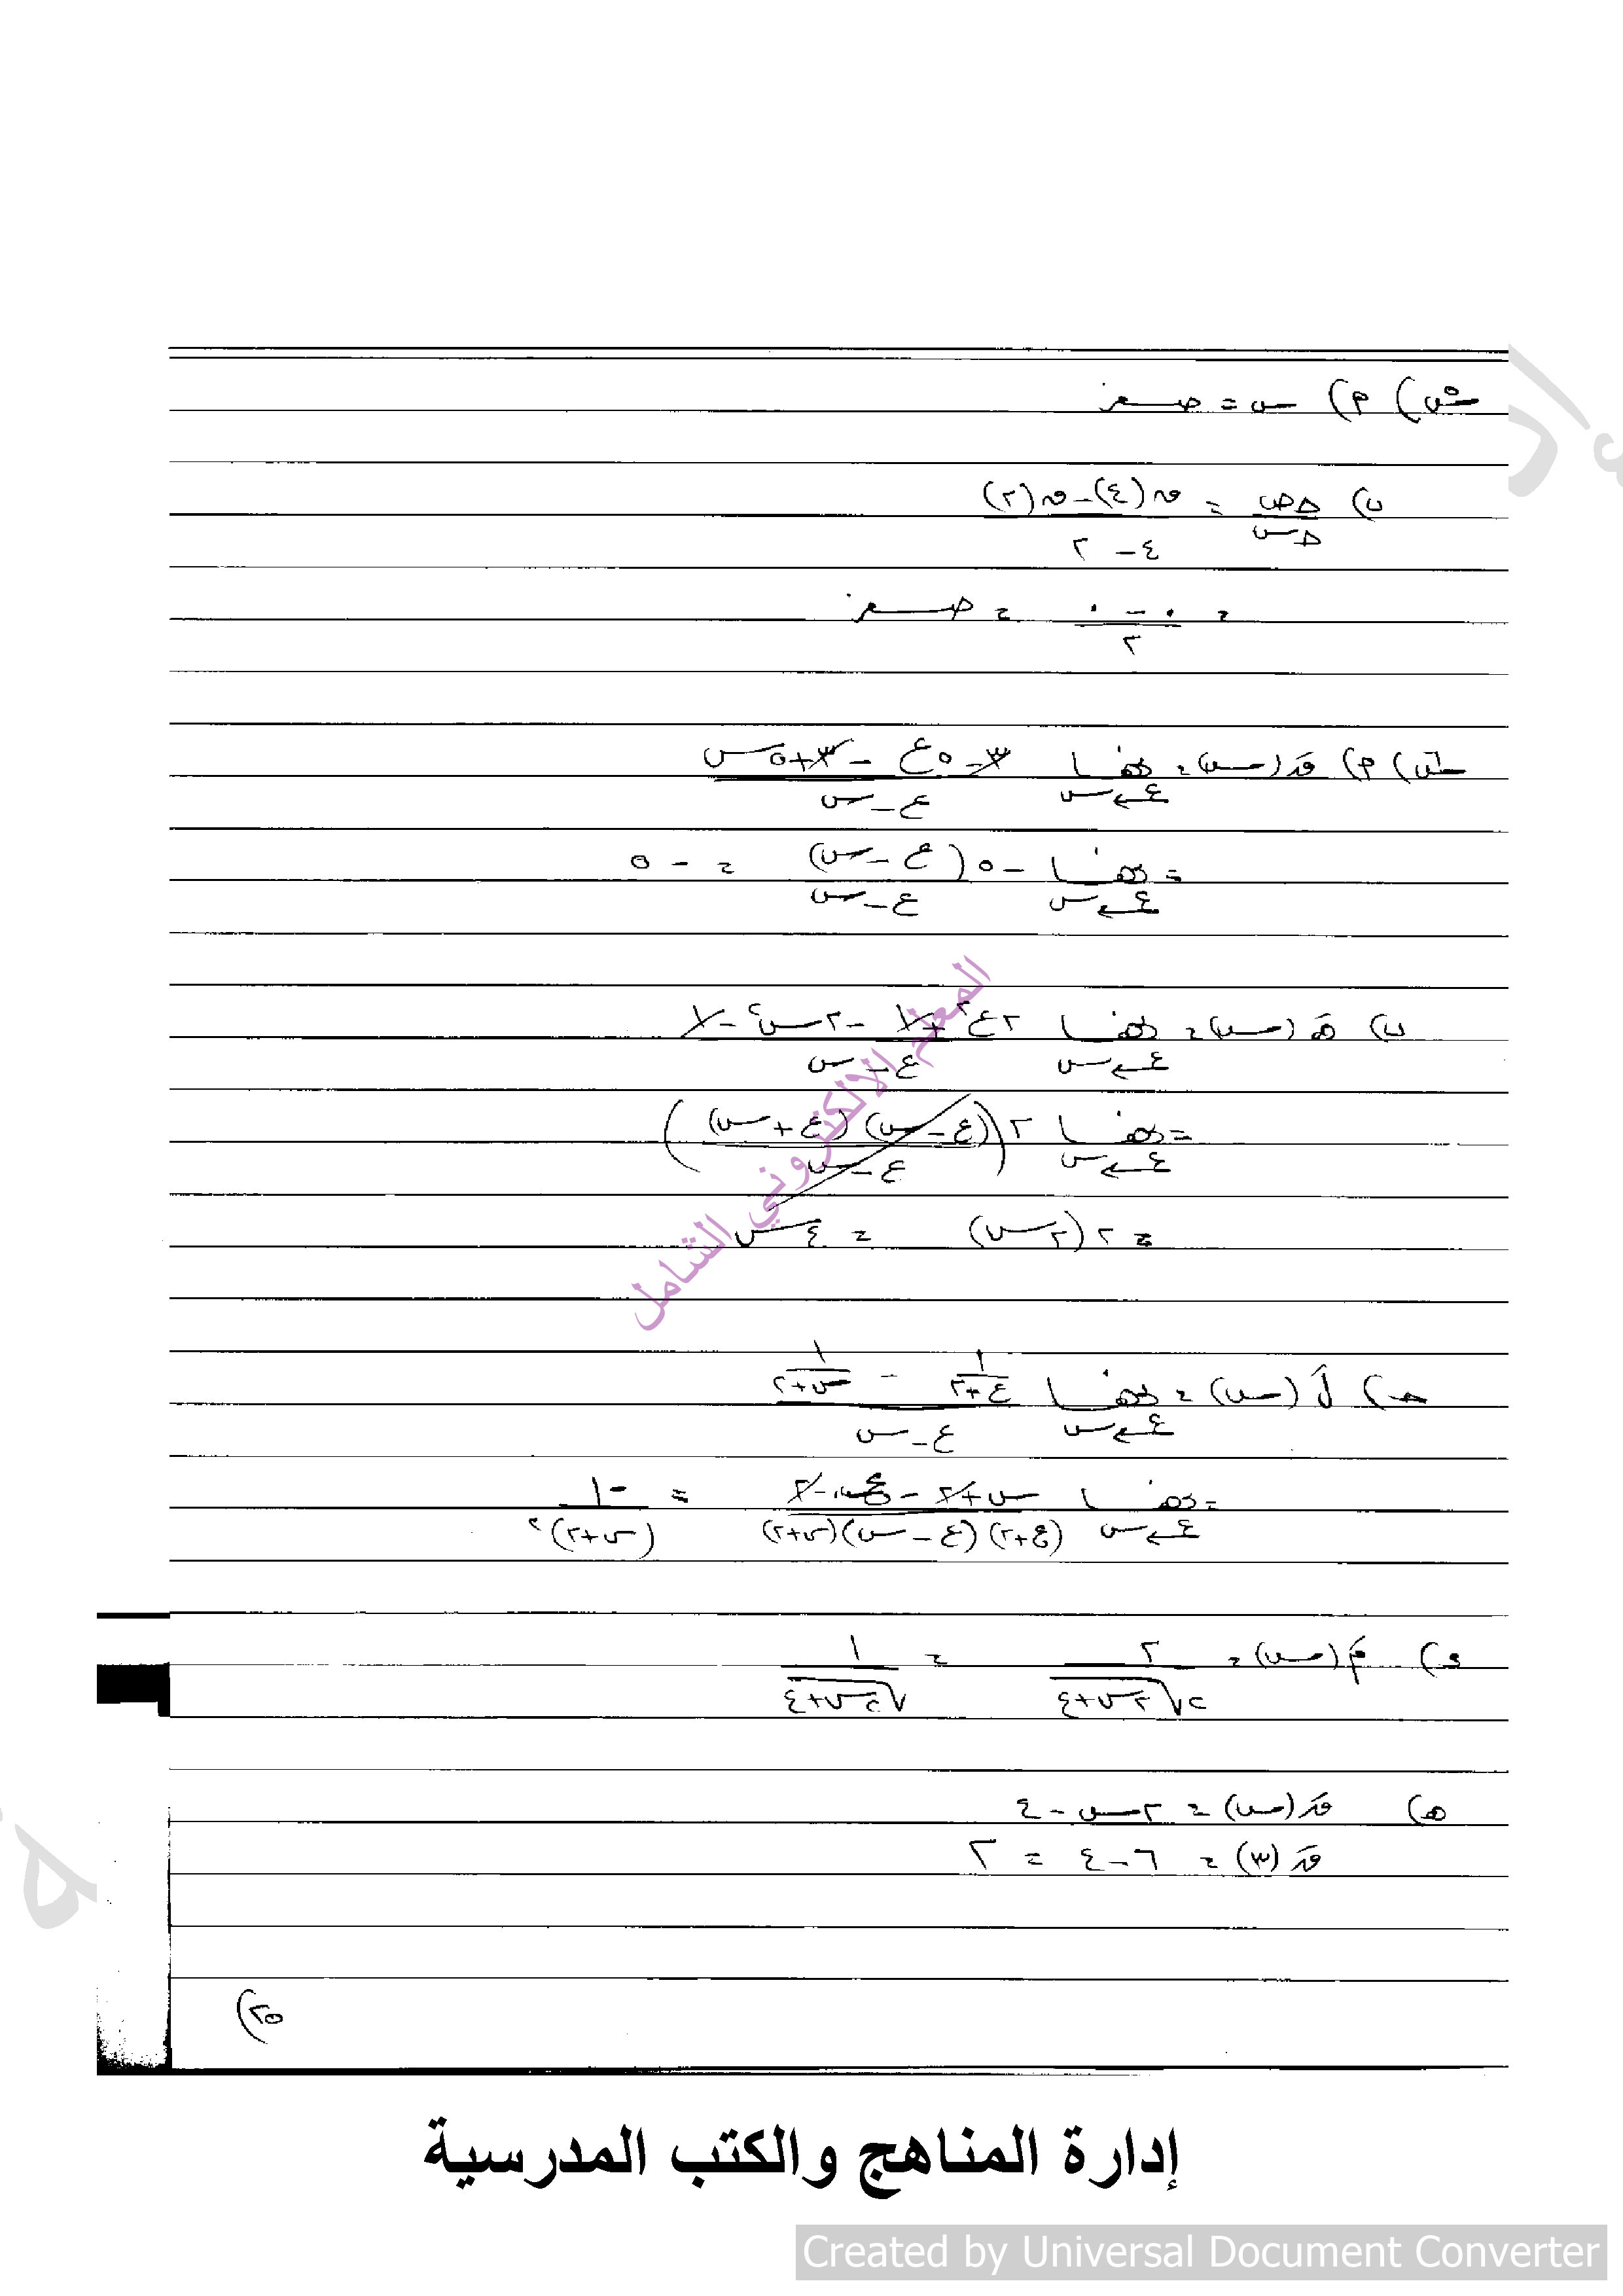 س٥) ٢) س = صفر
ب) Δص/Δس = ق(٤) - ق(٢) / ٤ - ٢
= ٠ - ٠ / ٢ = صفر
س٦) ٢) قَ(س) = نهــا ع←س ٣ - ٥ع - ٣ + ٥س / ع - س
= نهــا ع←س -٥(ع - س) / ع - س = -٥
ب) هَـ(س) = نهــا ع←س ٢ع٢ + ١ - ٢س٢ - ١ / ع - س
= نهــا ع←س ٢((ع - س)(ع + س) / ع - س)
= ٢(٢س) = ٤س
جـ) لَ(س) = نهــا ع←س ١/(ع+٢) - ١/(س+٢) / ع - س
= نهــا ع←س س+٢ - ع - ٢ / (ع+٢)(ع - س)(س+٢) = -١ / (س+٢)٢
د) مَ(س) = ٢ / ٢√(٢س+٤) = ١ / √(٢س+٤)
هـ) قَ(س) = ٢س - ٤
قَ(٣) = ٦ - ٤ = ٢
(٢٥
المعلم الالكتروني الشامل
إدارة المناهج والكتب المدرسية
Created by Universal Document Converter